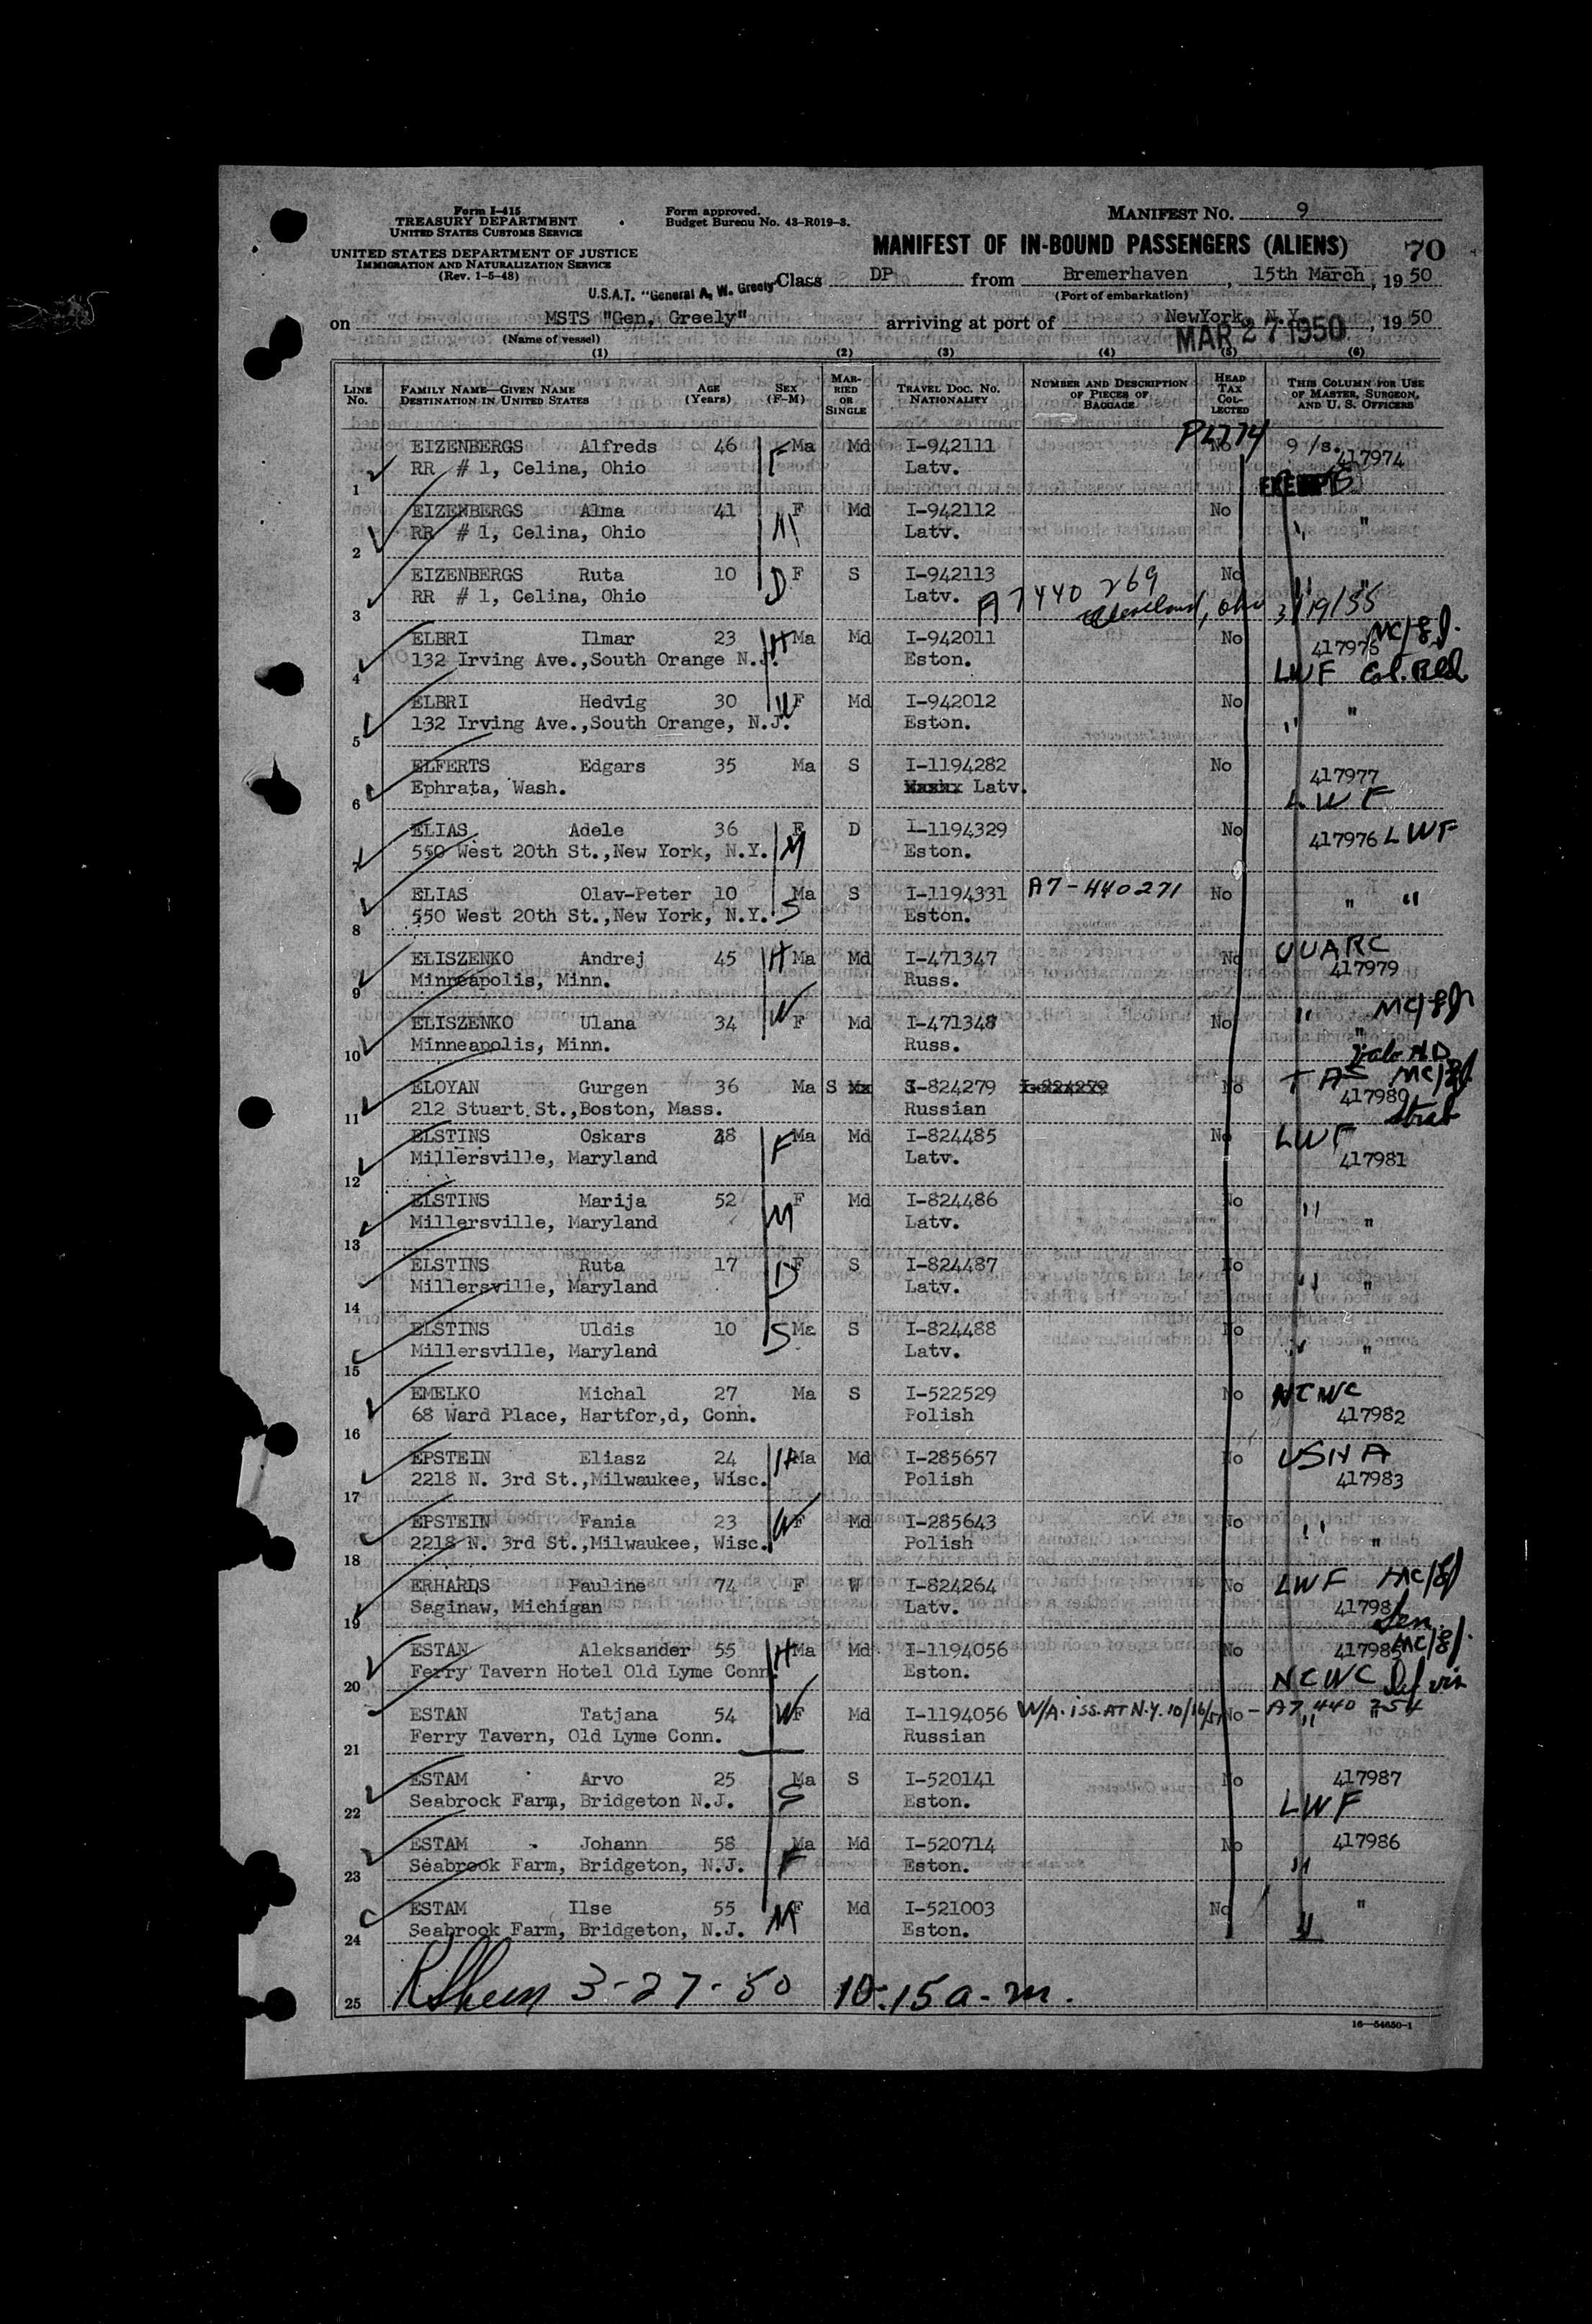 Form I-415
TREASURY DEPARTMENT
UNITED STATES CUSTOMS SERVICE
UNITED STATES DEPARTMENT OF JUSTICE
IMMIGRATION AND NATURALIZATION SERVICE
(Rev. 1-5-48)
Form approved.
Budget Bureau No. 43-R019-3.
MANIFEST NO. 9
MANIFEST OF IN-BOUND PASSENGERS (ALIENS) 70
U.S.A.T. "General A. W. Greely" Class DP from Bremerhaven, 15th March, 19 50
(Port of embarkation)
on MSTS "Gen. Greely" arriving at port of NewYork, N.Y., 19 50
(Name of vessel)
MAR 27 1950
(1) (2) (3) (4) (5) (6)
LINE NO. FAMILY NAME—GIVEN NAME DESTINATION IN UNITED STATES AGE (Years) SEX (F-M) MARRIED OR SINGLE TRAVEL DOC. NO. NATIONALITY NUMBER AND DESCRIPTION OF PIECES OF BAGGAGE HEAD TAX COLLECTED THIS COLUMN FOR USE OF MASTER, SURGEON, AND U. S. OFFICERS
PL774
EIZENBERGS Alfreds 46 F Ma Md I-942111 No 9 /s. 417974
1 RR # 1, Celina, Ohio Latv.
EIZENBERGS Alma 41 M F Md I-942112 No " "
2 RR # 1, Celina, Ohio Latv.
EIZENBERGS Ruta 10 D F S I-942113 No " "
3 RR # 1, Celina, Ohio Latv. A7 440 269 Cleveland, Ohio 3/19/55
ELBRI Ilmar 23 H Ma Md I-942011 No 417975 MC/gj.
4 132 Irving Ave.,South Orange N.J. Eston. LWF Col. Bld
ELBRI Hedvig 30 W F Md I-942012 No " "
5 132 Irving Ave.,South Orange, N.J. Eston.
ELFERTS Edgars 35 Ma S I-1194282 No 417977
6 Ephrata, Wash. Latv. LWF
ELIAS Adele 36 F D I-1194329 No 417976 LWF
7 550 West 20th St.,New York, N.Y. M Eston.
ELIAS Olav-Peter 10 Ma S I-1194331 A7-440271 No " "
8 550 West 20th St.,New York, N.Y. S Eston.
ELISZENKO Andrej 45 H Ma Md I-471347 No UUARC 417979
9 Minneapolis, Minn. Russ.
ELISZENKO Ulana 34 W F Md I-471348 No " " MC/gj
10 Minneapolis, Minn. Russ.
ELOYAN Gurgen 36 Ma S I-824279 I-824279 No 417980
11 212 Stuart St.,Boston, Mass. Russian
ELSTINS Oskars 48 F Ma Md I-824485 No LWF 417981
12 Millersville, Maryland Latv.
ELSTINS Marija 52 M F Md I-824486 No " "
13 Millersville, Maryland Latv.
ELSTINS Ruta 17 D F S I-824487 No " "
14 Millersville, Maryland Latv.
ELSTINS Uldis 10 S Ma S I-824488 No " "
15 Millersville, Maryland Latv.
EMELKO Michal 27 Ma S I-522529 No NCWC 417982
16 68 Ward Place, Hartfor,d, Conn. Polish
EPSTEIN Eliasz 24 H Ma Md I-285657 No USNA 417983
17 2218 N. 3rd St.,Milwaukee, Wisc. Polish
EPSTEIN Fania 23 W F Md I-285643 No " "
18 2218 N. 3rd St.,Milwaukee, Wisc. Polish
ERHARDS Pauline 74 F W I-824264 No LWF MC/gj
19 Saginaw, Michigan Latv. Sen.
ESTAN Aleksander 55 H Ma Md I-1194056 No 417985 MC/gj.
20 Ferry Tavern Hotel Old Lyme Conn. Eston. NCWC Def vis
ESTAN Tatjana 54 W F Md I-1194056 W/A. iss. AT N.Y. 10/16/57 No - A7 440 254
21 Ferry Tavern, Old Lyme Conn. Russian
ESTAM Arvo 25 Ma S I-520141 No 417987
22 Seabrock Farm, Bridgeton N.J. S Eston. LWF
ESTAM Johann 58 Ma Md I-520714 No 417986
23 Seabrook Farm, Bridgeton, N.J. F Eston. "
ESTAM Ilse 55 F Md I-521003 No "
24 Seabrook Farm, Bridgeton, N.J. M Eston. "
25 3-27-50 10:15 a.m.
16—54650-1